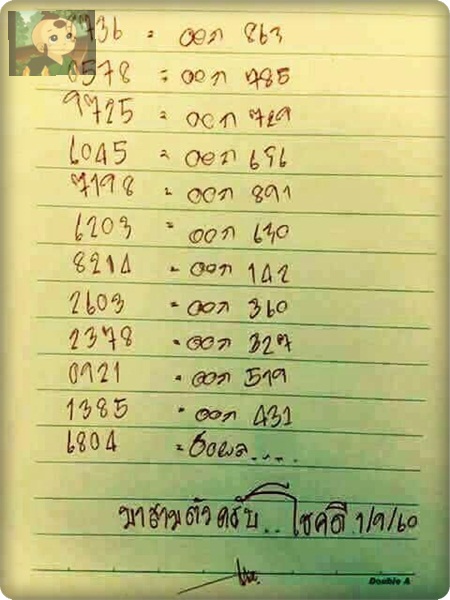 736 = ออก 863
8578 = ออก 785
9725 = ออก 729
6045 = ออก 696
7198 = ออก 891
6203 = ออก 630
8214 = ออก 142
2603 = ออก 360
2378 = ออก 327
0921 = ออก 519
1385 = ออก 431
6804 = รอผล....
มาสามตัวครับ.. โชคดี 1/9/60
Double A